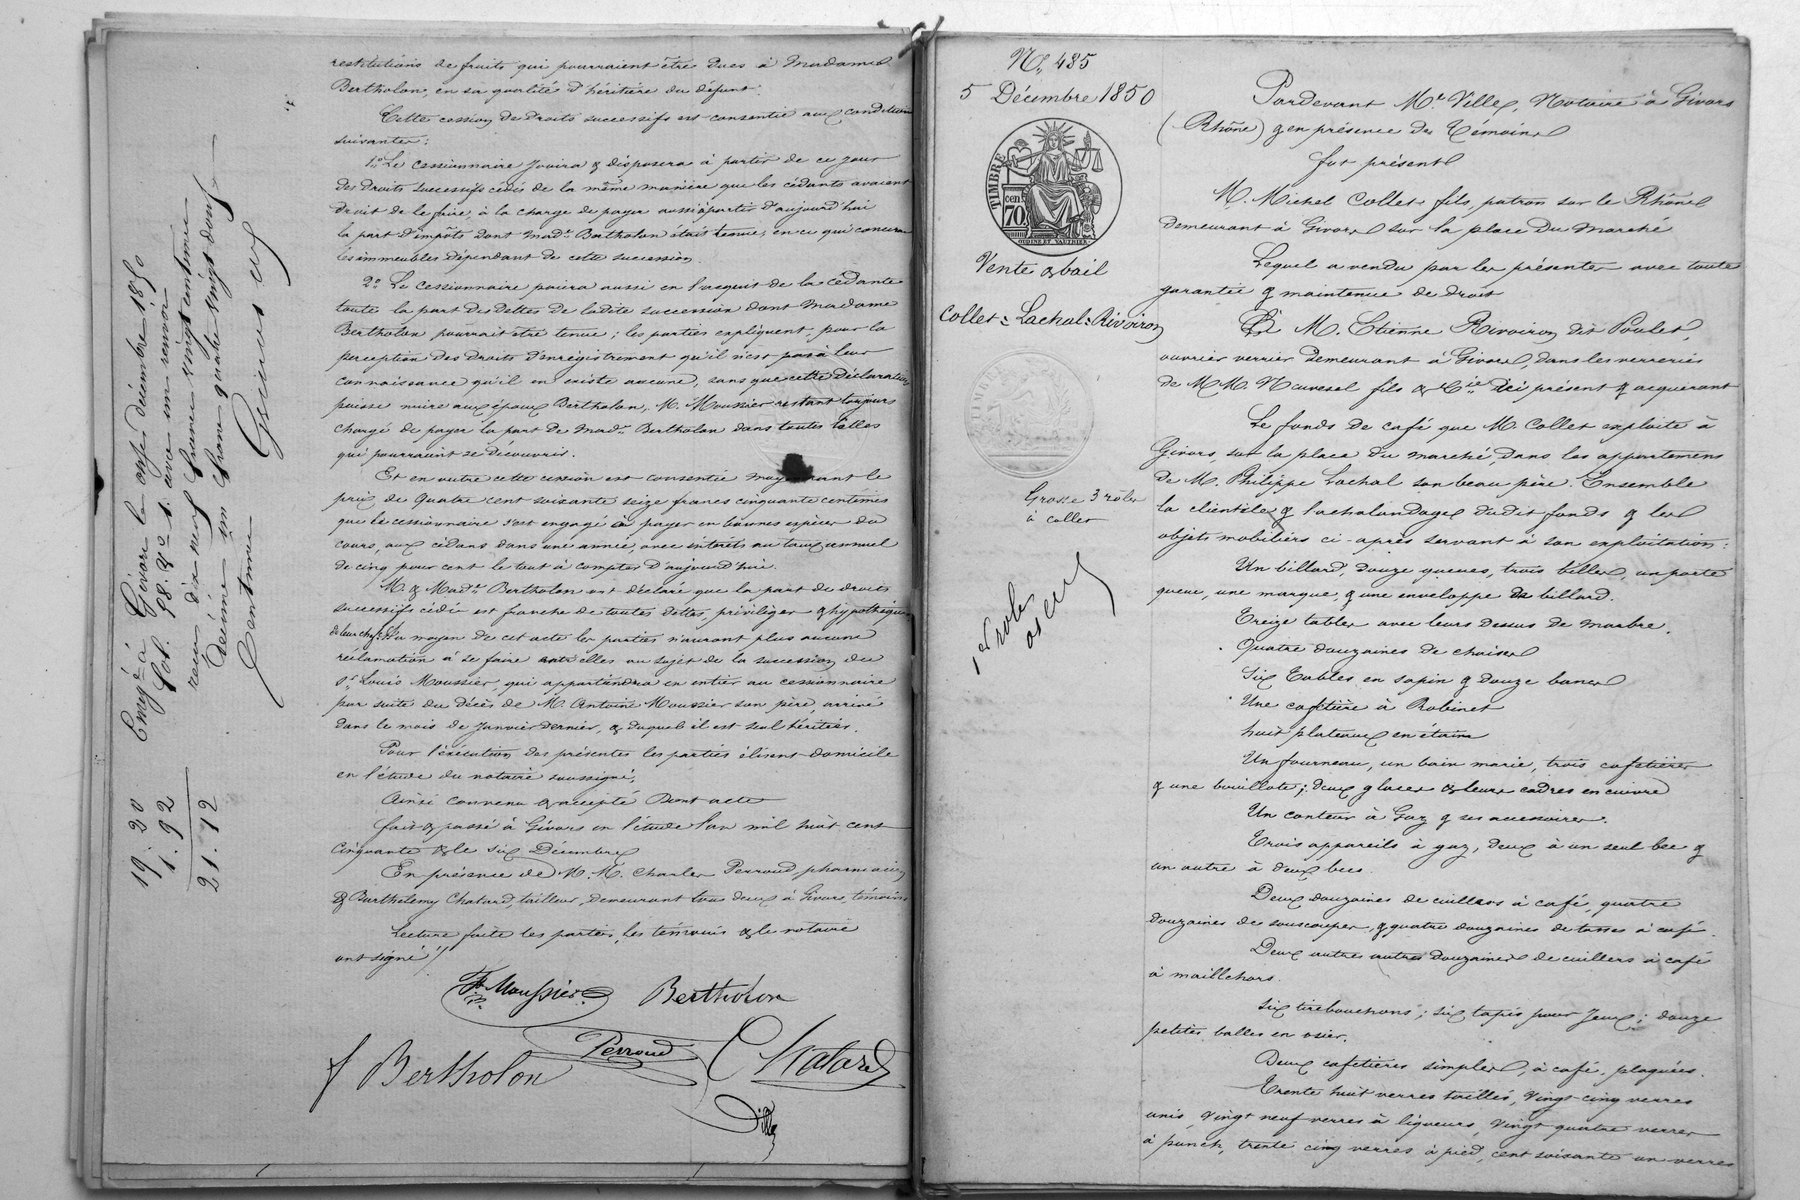 restitutions de fruits qui pourraient être dues à Madame
Bertholon, en sa qualité d'héritière du défunt.
Cette cession de droits successifs est consentie aux conditions
suivantes:
1° Le cessionnaire jouira & disposera à partir de ce jour
des droits successifs cédés de la même manière que les cédants avaient
droit de le faire, à la charge de payer aussi à partir d'aujourd'hui
la part d'impôts dont Mad.e Bertholon était tenue, en ce qui concerne
les immeubles dépendant de cette succession.
2° Le cessionnaire paiera aussi en l'acquit de la cédante
toute la part des dettes de ladite succession dont Madame
Bertholon pourrait être tenue; les parties expliquent, pour la
perception des droits d'enregistrement qu'il n'est pas à leur
connaissance qu'il en existe aucune, sans que cette déclaration
puisse nuire aux époux Bertholon, M. Moussier restant toujours
chargé de payer la part de Mad.e Bertholon dans toutes celles
qui pourraient se découvrir.
Et en outre cette cession est consentie moyennant le
prix de quatre cent soixante seize francs cinquante centimes
que le cessionnaire s'est engagé à payer en bonnes espèces du
cours, aux cédans dans une année, avec intérêts au taux annuel
de cinq pour cent le tout à compter d'aujourd'hui.
M. & Mad.e Bertholon ont déclaré que la part de droits
successifs cédée est franche de toutes dettes, privilèges & hypothèques
de leur chef. Au moyen de cet acte les parties n'auront plus aucune
réclamation à se faire entr'elles au sujet de la succession du
s.r Louis Moussier, qui appartiendra en entier au cessionnaire
par suite du décès de M. Antoine Moussier son père, arrivé
dans le mois de Janvier dernier, & duquel il est seul héritier.
Pour l'exécution des présentes les parties élisent domicile
en l'étude du notaire soussigné.
Ainsi convenu & accepté Dont acte
fait & passé à Givors en l'étude l'an mil huit cent
cinquante & le six Décembre
En présence de M. M. Charles Perroud, pharmacien
& Barthélemy Chatard, tailleur, demeurant tous deux à Givors, témoins
Lecture faite les parties, les témoins & le notaire
ont signé
Moussier Bertholon
Perroud Chatard
f Bertholon
Ville
Enreg.é à Givors le onze décembre 1850
fol. 98. V° avec un renvoi
reçu dix neuf francs vingt centimes
Décime un franc quatre vingt douze
Centimes
19. 20
1. 92
21. 12
N° 485
5 Décembre 1850
TIMBRE
70 cen
Vente & bail
Collet = Lachal = Rivoiron
Grosse 3 rôles
à Collet
1er rôle
Pardevant M.e Ville, Notaire à Givors
(Rhône) & en présence de Témoins
fut présent
M. Michel Collet fils, patron sur le Rhône
demeurant à Givors sur la place du Marché
Lequel a vendu par les présentes avec toute
garantie & maintenue de droit
À M. Etienne Rivoiron dit Poulet,
ouvrier verrier demeurant à Givors, dans les verreries
de M.M. Neuvesel fils & Cie ici présent & acquérant
Le fonds de café que M. Collet exploite à
Givors, sur la place du marché, dans les appartemens
de M. Philippe Lachal son beau père. Ensemble
la clientèle & l'achalandage dudit fonds & les
objets mobiliers ci-après servant à son exploitation:
Un billard, douze queues, trois billes, un porte
queue, une marque, & une enveloppe de billard.
Treize tables avec leurs dessus de marbre.
Quatre douzaines de chaises
Six Tables en sapin & douze bancs
Une cafetière à Robinet
huit plateaux en étain
Un fourneau, un bain marie, trois cafetières
& une bouillote; deux glaces & leurs cadres en cuivre
Un conteur à Gaz & ses accessoires.
Trois appareils à gaz, deux à un seul bec &
un autre à deux becs.
Deux douzaines de cuillers à café, quatre
douzaines de soucoupes, & quatre douzaines de tasses à café.
Deux autres autres douzaines de cuillers à café
à maillchors.
Six tirebouchons; six tapis pour jeux; douze
petites balles en osier.
Deux cafetières simples, à café, plaquées.
Trente huit verres taillés, vingt-cinq verres
unis, vingt neuf verres à liqueurs, vingt quatre verres
à punch, trente cinq verres à pied, cent soixante un verres